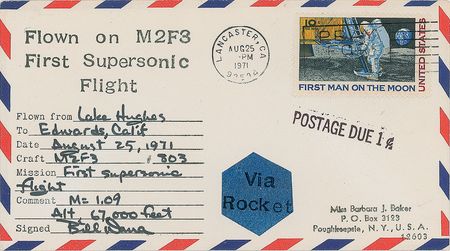 Flown on M2F3
First Supersonic
Flight
LANCASTER, CA
AUG 25
PM
1971
UNITED STATES
FIRST MAN ON THE MOON
POSTAGE DUE 1¢
Flown from Lake Hughes
To Edwards, Calif
Date August 25, 1971
Craft M2F3 803
Mission First supersonic
flight
Comment M = 1.09
Alt, 67,000 feet
Signed Bill Dana
Via
Rocket
Miss Barbara J. Baker
P.O. Box 3123
Poughkeepsie, N.Y., U.S.A.
12603